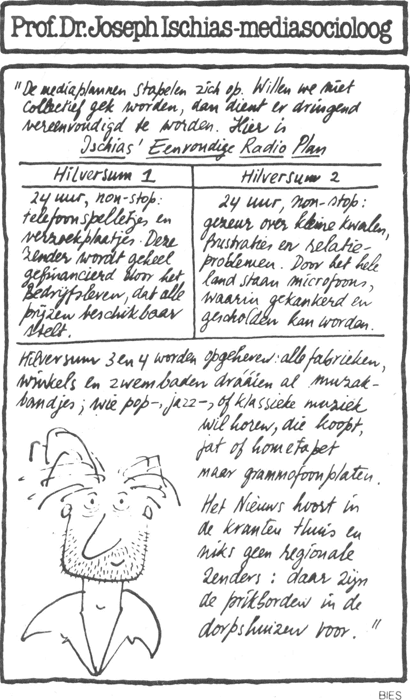 Prof. Dr. Joseph Ischias-mediasocioloog
"De mediaplannen stapelen zich op. Willen we niet
collectief gek worden, dan dient er dringend
vereenvoudigd te worden. Hier is
Ischias' Eenvoudige Radio Plan
Hilversum 1
24 uur, non-stop:
telefoonspelletjes en
verzoekplaatjes. Deze
zender wordt geheel
gefinancierd door het
Bedrijfsleven, dat alle
prijzen beschikbaar
stelt.
Hilversum 2
24 uur, non-stop:
gezeur over kleine kwalen,
frustraties en relatie-
problemen. Door het hele
land staan microfoons,
waarin gekankerd en
gescholden kan worden.
Hilversum 3 en 4 worden opgeheven: alle fabrieken,
winkels en zwembaden drááien al muzak-
bandjes; wie pop-, jazz-, of klassieke muziek
wil horen, die koopt,
jat of hometapet
maar grammofoonplaten.
Het Nieuws hoort in
de kranten thuis en
niks geen regionale
zenders: daar zijn
de prikborden in de
dorpshuizen voor."
BIES